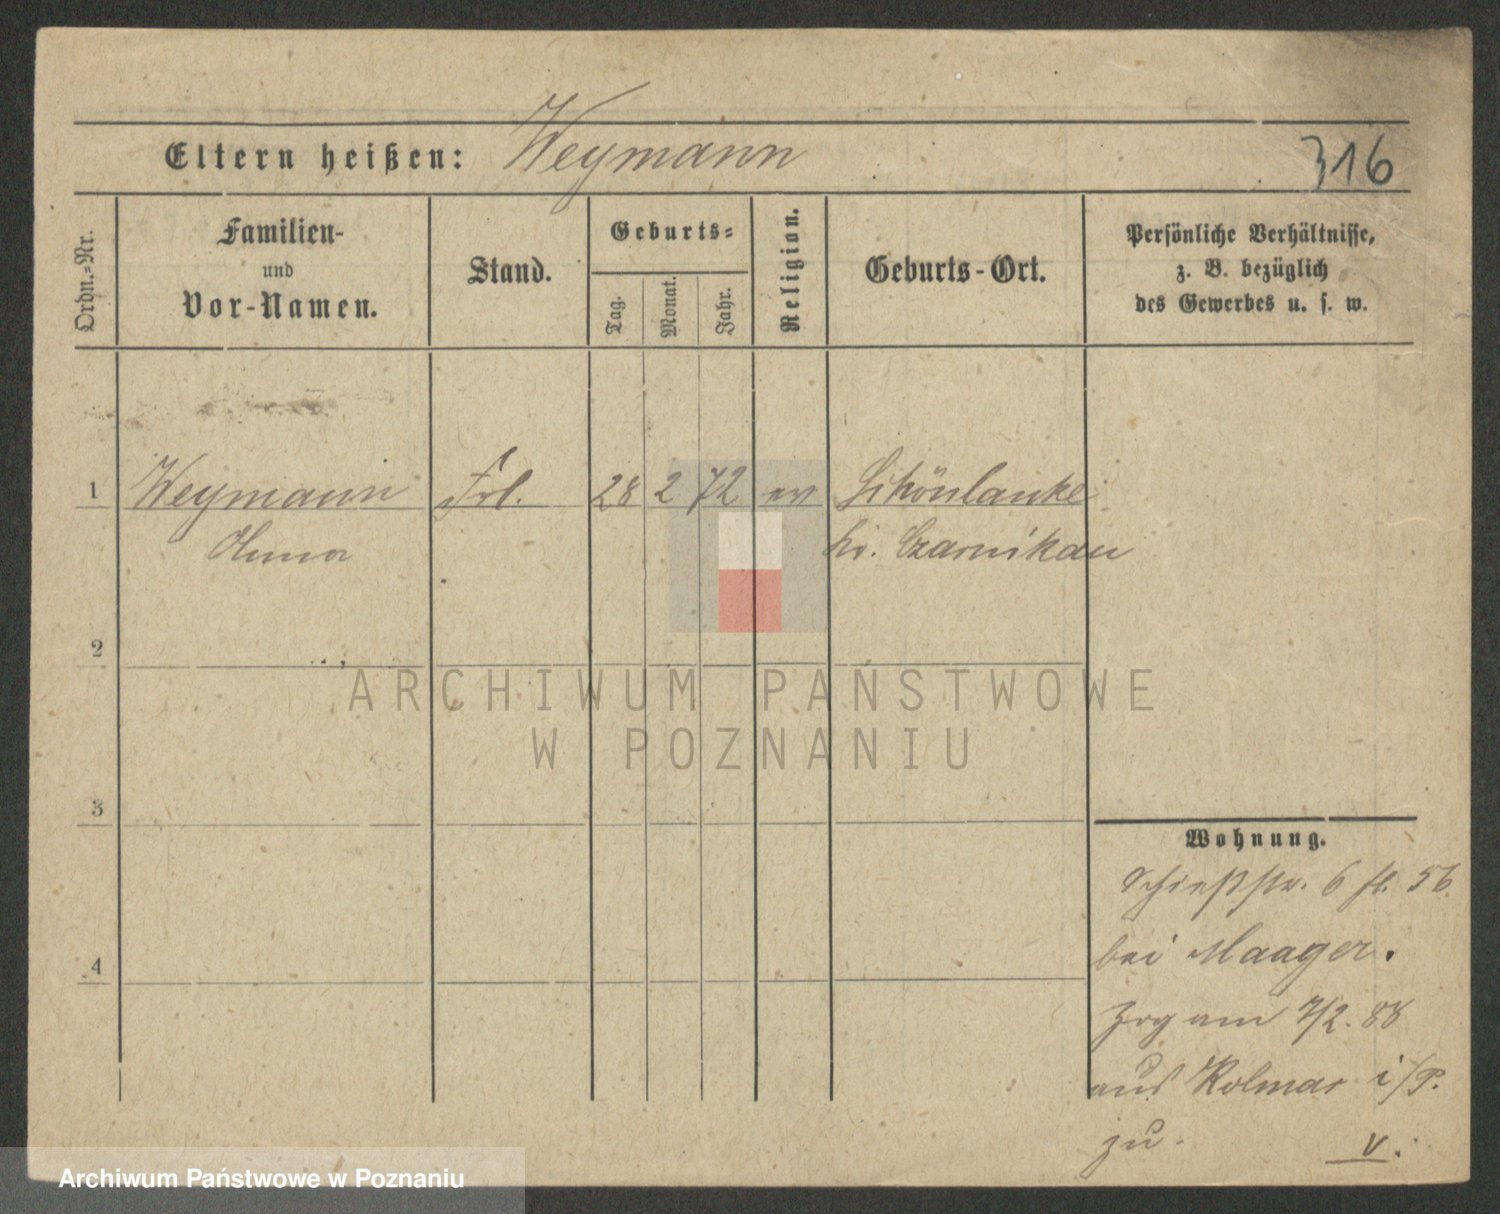 Eltern heißen: Weymann
316
Ordn.=Nr.
Familien-
und
Vor-Namen.
Stand.
Geburts=
Tag.
Monat.
Jahr.
Religion.
Geburts-Ort.
Persönliche Verhältnisse,
z. B. bezüglich
des Gewerbes u. s. w.
1 Weymann Frl. 28 2 72 ev Schönlanke
Kr. Czarnikau
2
ARCHIWUM PAŃSTWOWE
W POZNANIU
3
Wohnung.
Schießstr. 6 56.
bei Maager.
4
Zog am 7/2. 88
aus Kolmar i/P.
zu.
v.
Archiwum Państwowe w Poznaniu